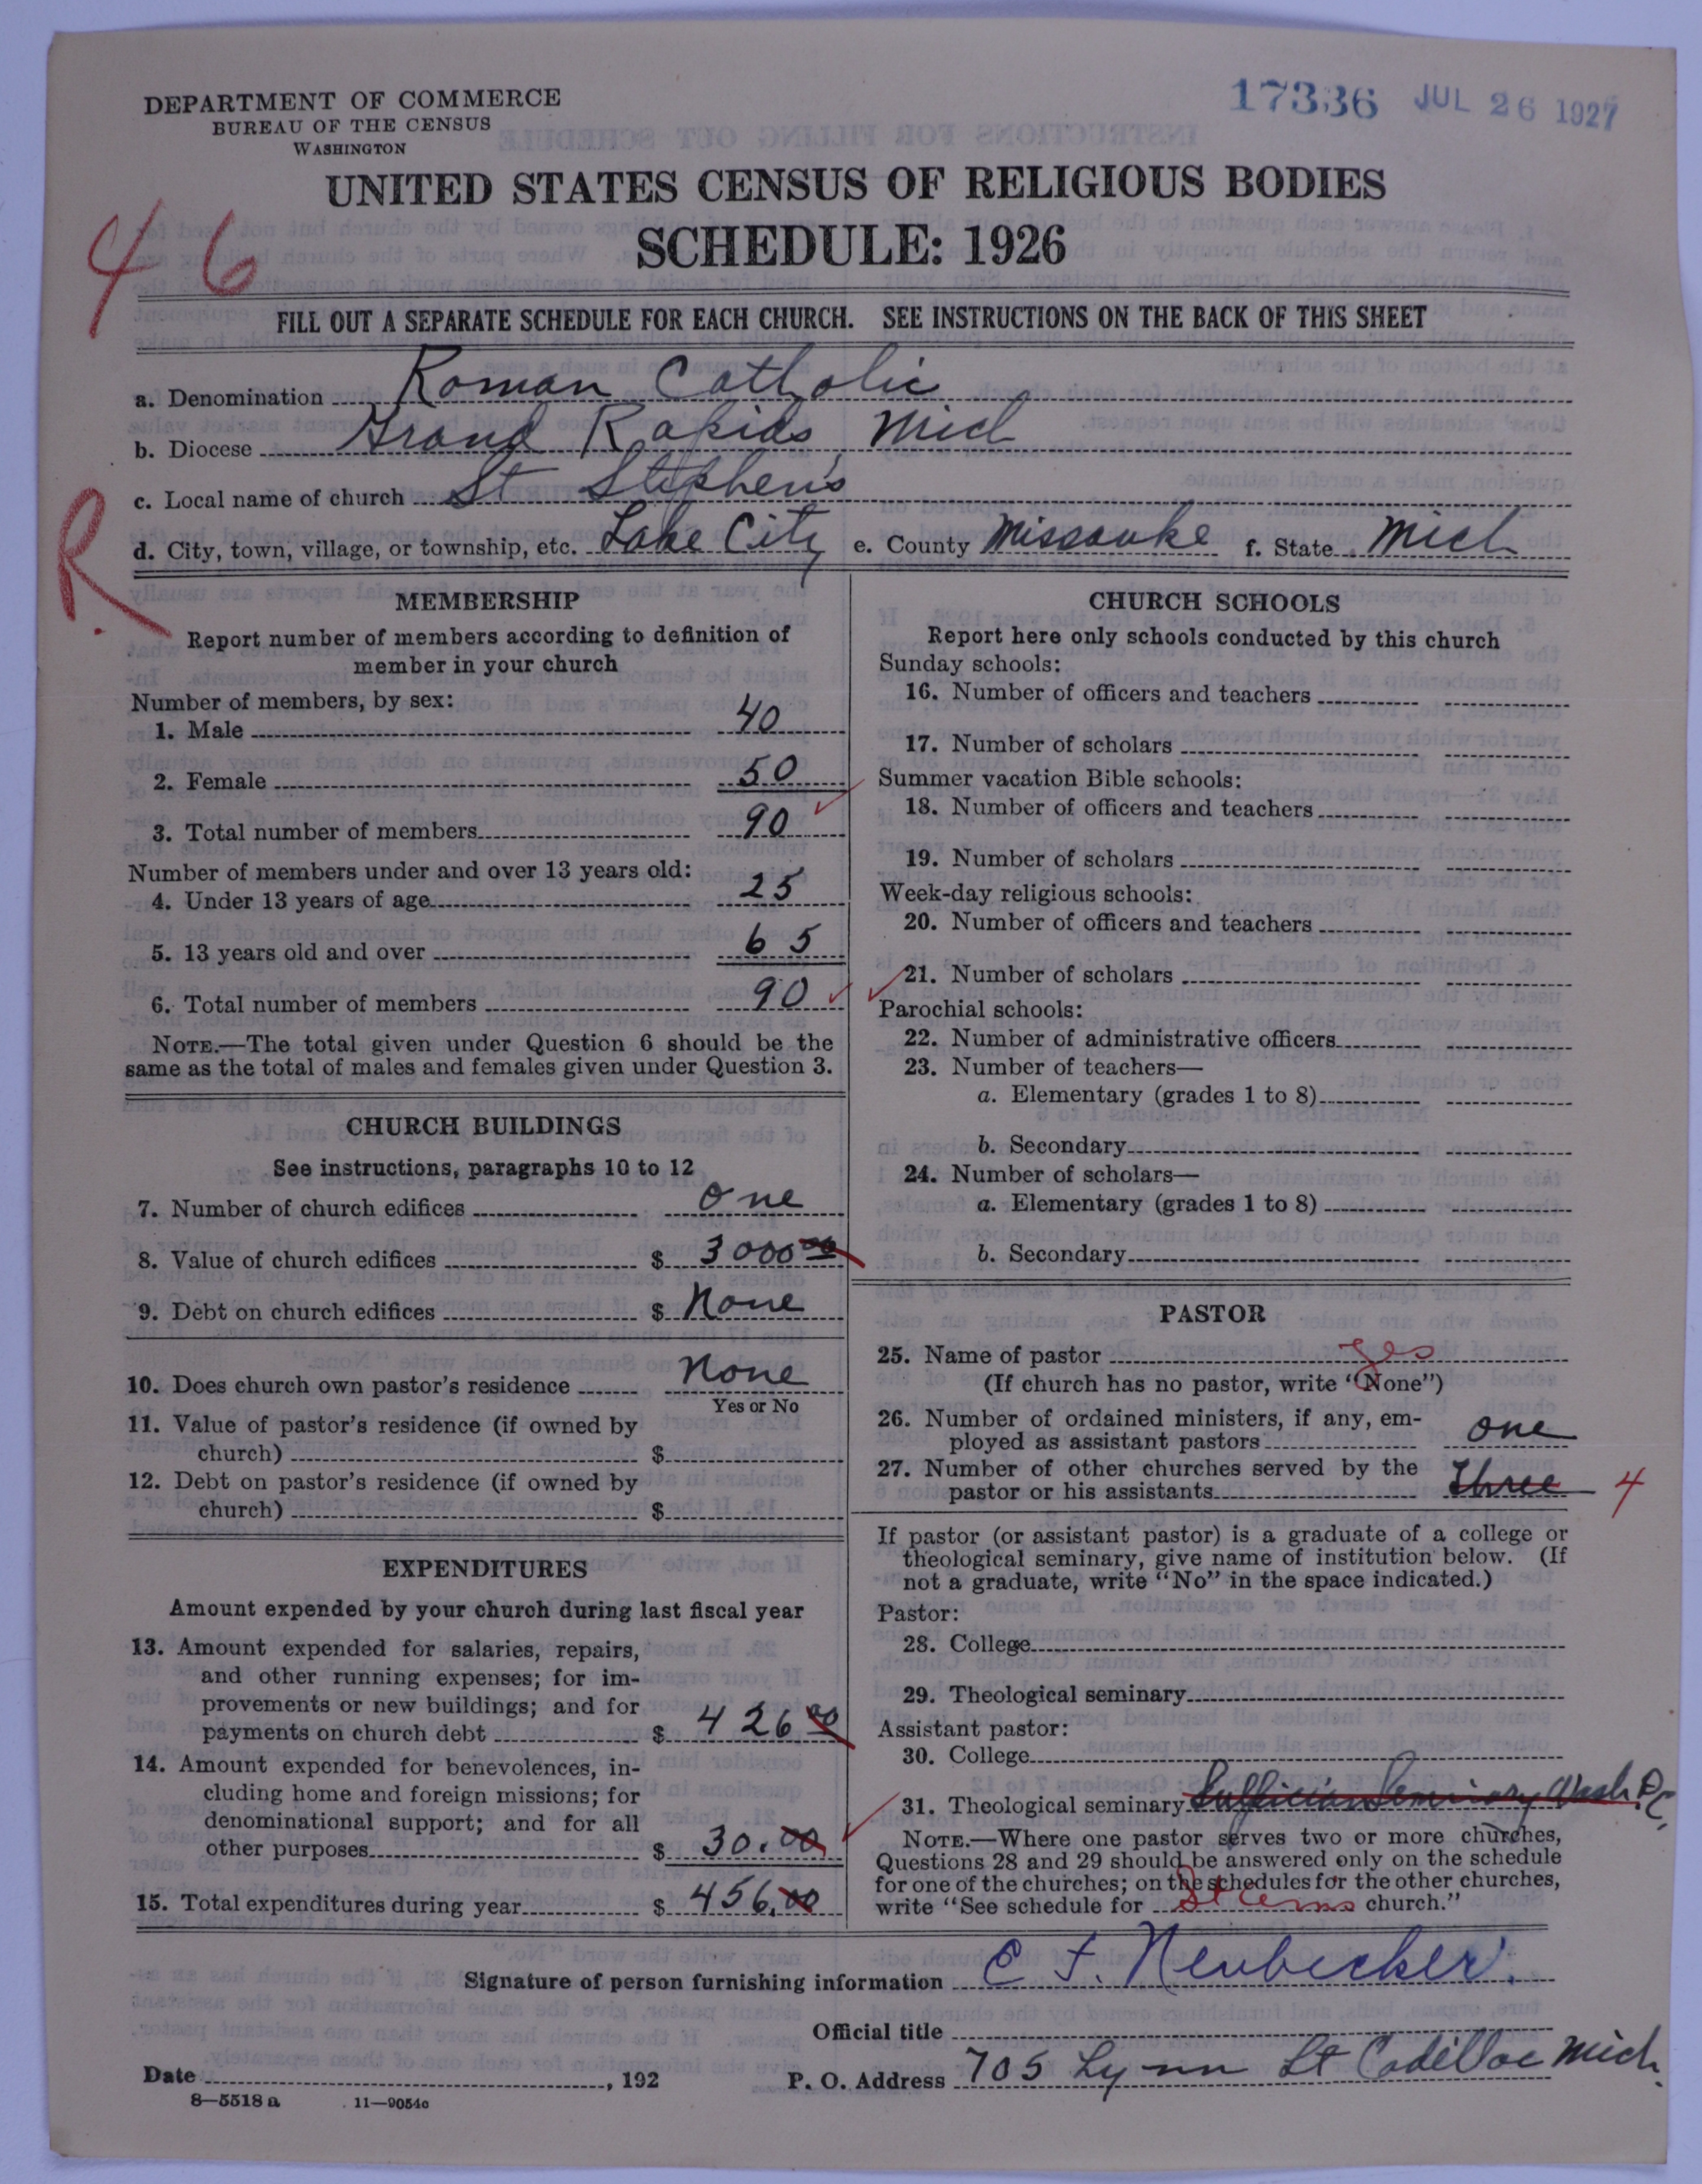 17336 JUL 26 1927
DEPARTMENT OF COMMERCE
BUREAU OF THE CENSUS
WASHINGTON
UNITED STATES CENSUS OF RELIGIOUS BODIES
SCHEDULE: 1926
46
FILL OUT A SEPARATE SCHEDULE FOR EACH CHURCH. SEE INSTRUCTIONS ON THE BACK OF THIS SHEET
a. Denomination Roman Catholic
b. Diocese Grand Rapids Mich
c. Local name of church St Stephen's
R.
d. City, town, village, or township, etc. Lake City e. County Missaukee f. State Mich
MEMBERSHIP
Report number of members according to definition of
member in your church
Number of members, by sex:
1. Male 40
2. Female 50
3. Total number of members 90
Number of members under and over 13 years old:
4. Under 13 years of age 25
5. 13 years old and over 65
6. Total number of members 90
NOTE.—The total given under Question 6 should be the
same as the total of males and females given under Question 3.
CHURCH BUILDINGS
See instructions, paragraphs 10 to 12
7. Number of church edifices one
8. Value of church edifices $ 3000 00
9. Debt on church edifices $ None
10. Does church own pastor's residence None
Yes or No
11. Value of pastor's residence (if owned by
church) $
12. Debt on pastor's residence (if owned by
church) $
EXPENDITURES
Amount expended by your church during last fiscal year
13. Amount expended for salaries, repairs,
and other running expenses; for im-
provements or new buildings; and for
payments on church debt $ 426 00
14. Amount expended for benevolences, in-
cluding home and foreign missions; for
denominational support; and for all
other purposes $ 30.00
15. Total expenditures during year $ 456.00
CHURCH SCHOOLS
Report here only schools conducted by this church
Sunday schools:
16. Number of officers and teachers
17. Number of scholars
Summer vacation Bible schools:
18. Number of officers and teachers
19. Number of scholars
Week-day religious schools:
20. Number of officers and teachers
21. Number of scholars
Parochial schools:
22. Number of administrative officers
23. Number of teachers—
a. Elementary (grades 1 to 8)
b. Secondary
24. Number of scholars—
a. Elementary (grades 1 to 8)
b. Secondary
PASTOR
25. Name of pastor yes
(If church has no pastor, write "None")
26. Number of ordained ministers, if any, em-
ployed as assistant pastors one
27. Number of other churches served by the
pastor or his assistants three 4
If pastor (or assistant pastor) is a graduate of a college or
theological seminary, give name of institution below. (If
not a graduate, write "No" in the space indicated.)
Pastor:
28. College
29. Theological seminary
Assistant pastor:
30. College
31. Theological seminary Sulpician Seminary Wash. D.C.
NOTE.—Where one pastor serves two or more churches,
Questions 28 and 29 should be answered only on the schedule
for one of the churches; on the schedules for the other churches,
write "See schedule for St church."
Signature of person furnishing information C F. Neubecker.
Official title
Date , 192
P. O. Address 705 Lynn St Cadillac Mich.
8—5518 a 11—9054c